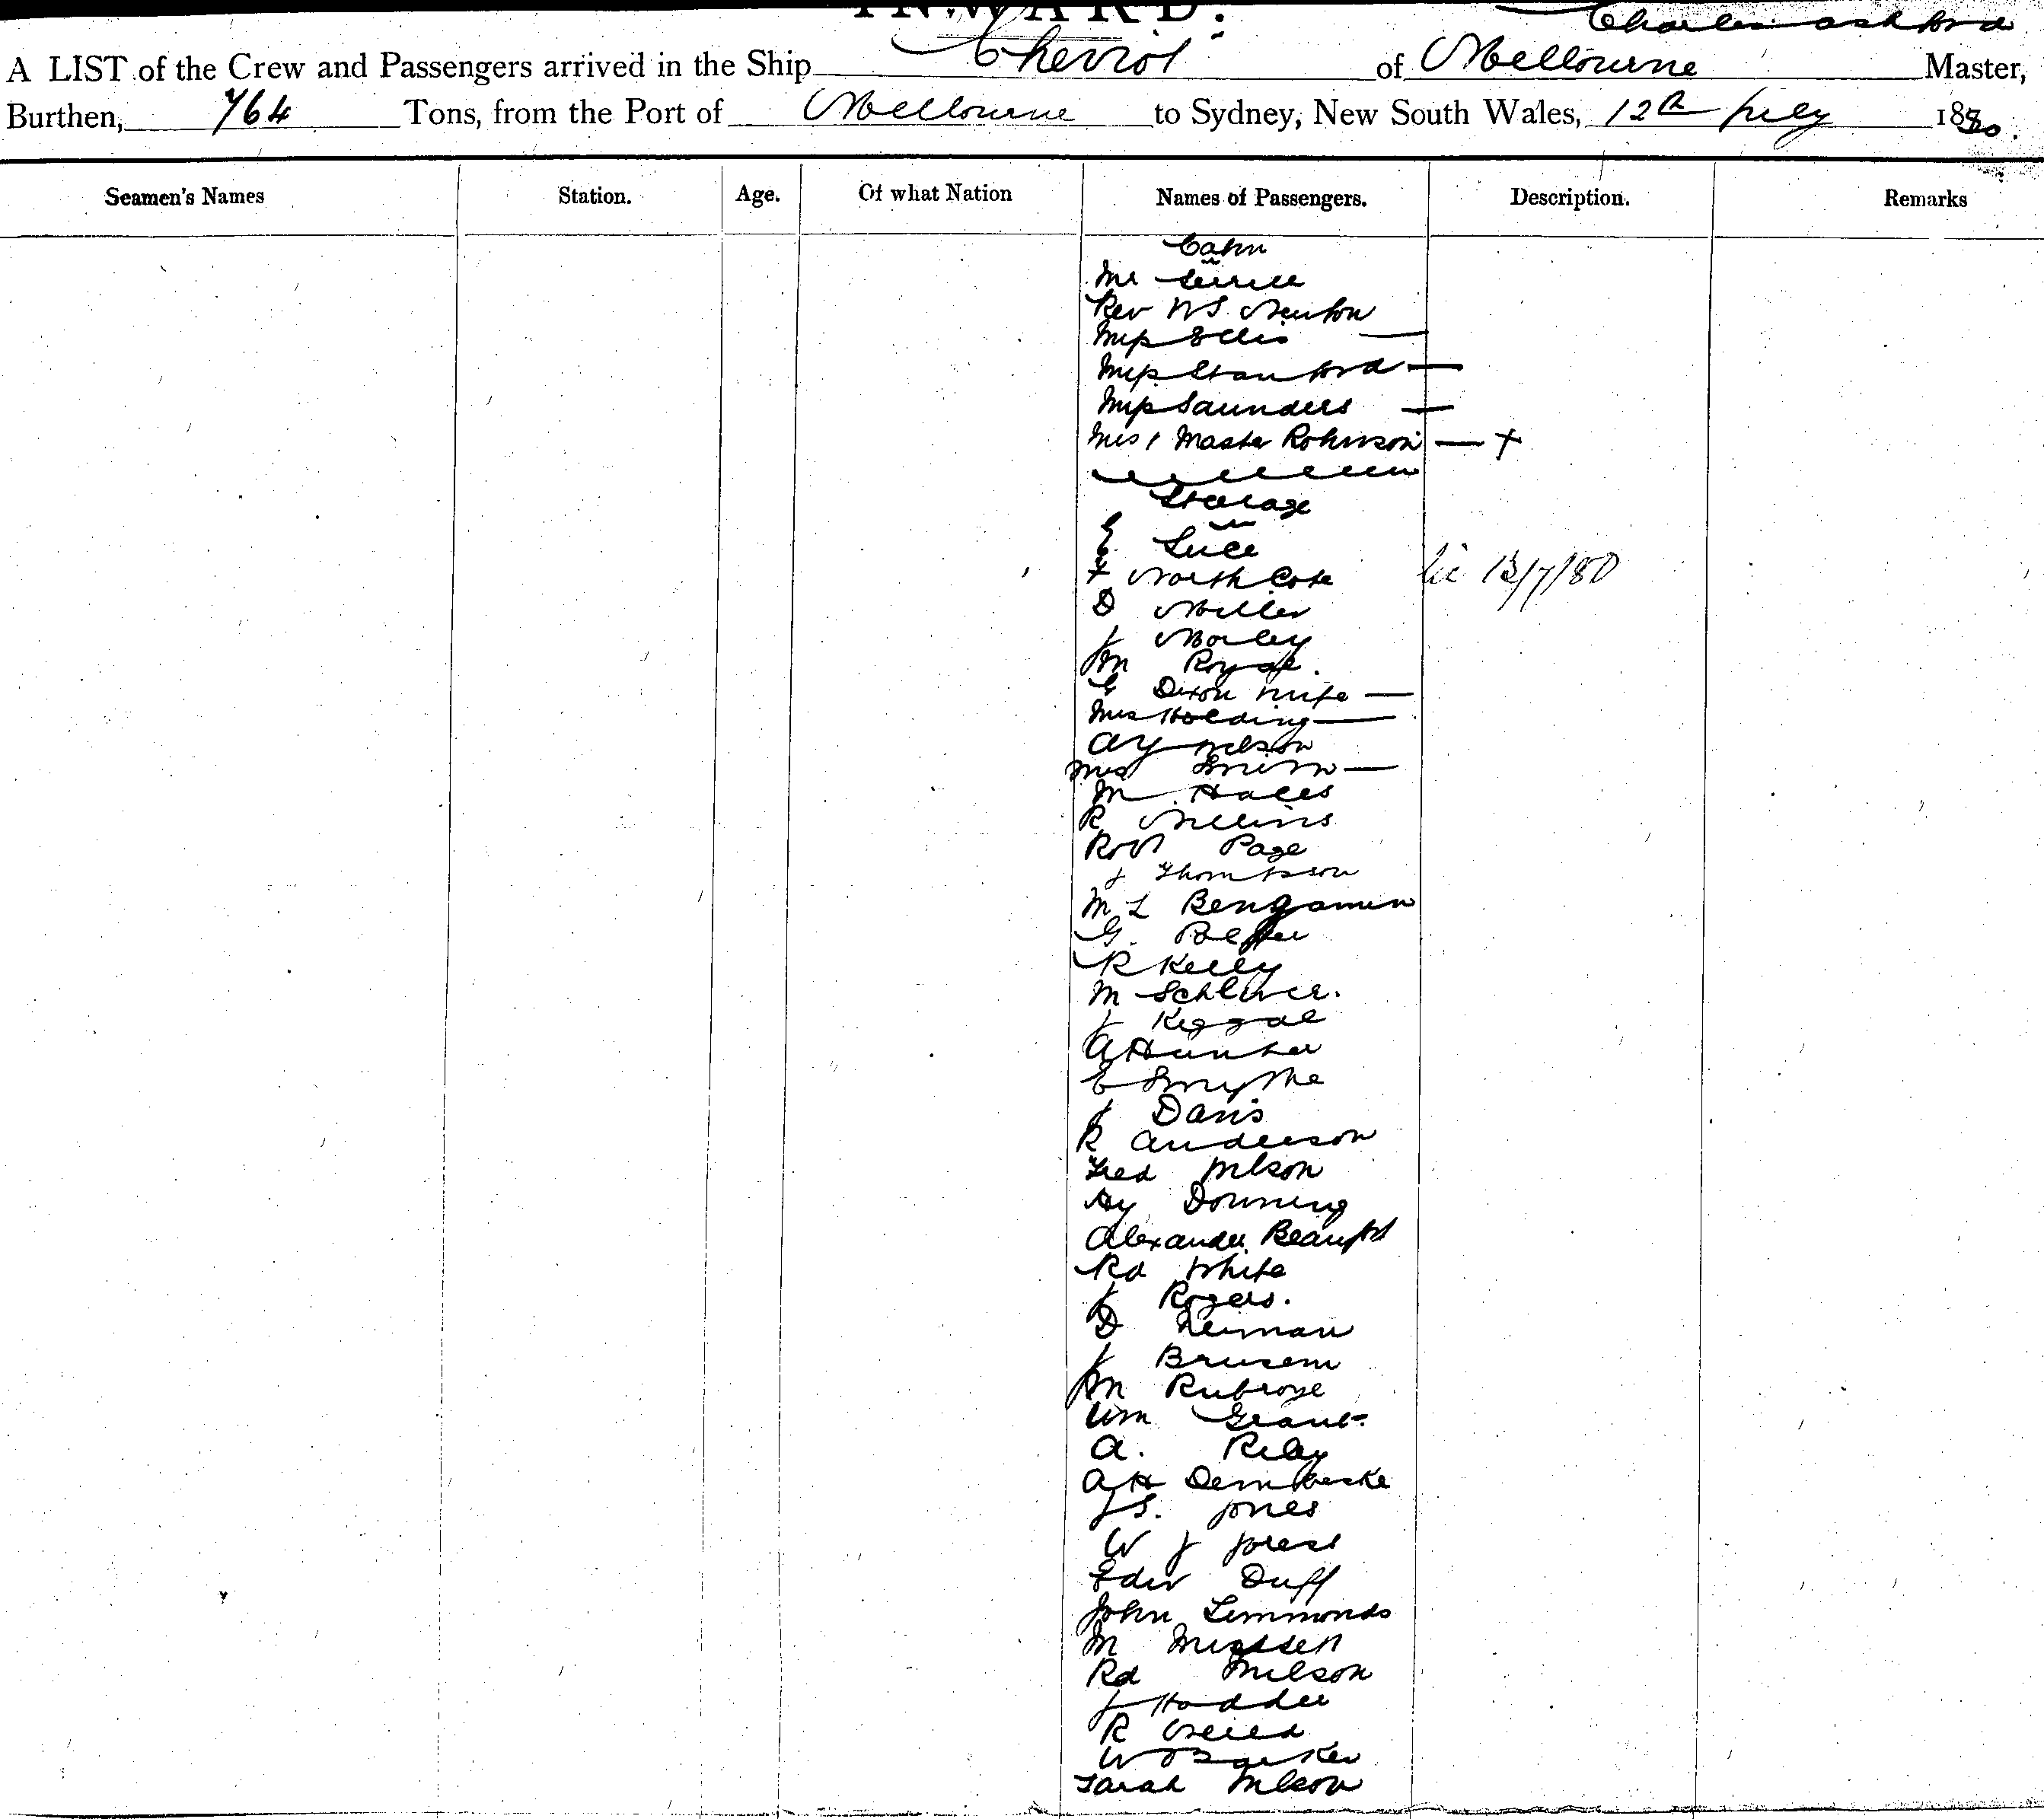 INWARD.
Charles Ashford
A LIST of the Crew and Passengers arrived in the Ship Cheviot of Melbourne Master,
Burthen, 764 Tons, from the Port of Melbourne to Sydney, New South Wales, 12th July 1880.
Seamen's Names Station. Age. Of what Nation Names of Passengers. Description. Remarks
Cabin
Mr
Rev W S Newton
Miss Ellis —
Miss Stanford —
Miss Saunders —
Mrs & Master Robinson — +
Steerage
E Luce
F North Cote 13/7/80
D Miller
J Morley
Wm Royal.
G Dixon wife —
Mrs Holding —
A Y Nelson
Mrs Smith —
M Hales
R
Robt Page
J Thompson
M L Bengamin
G.
R Kelly
M
J Keggal
A Hunter
E Smythe
J Davis
R Anderson
Fred Wilson
Hy Downing
Alexander Beaufort
Rd White
J Rogers.
D Neiman
J
Wm
Wm Grant.
A. Riley
A H
J S. Jones
W J
Edw Duff
John Simmonds
M
Rd Wilson
J Hodder
R
W Barker
Sarah Wilson